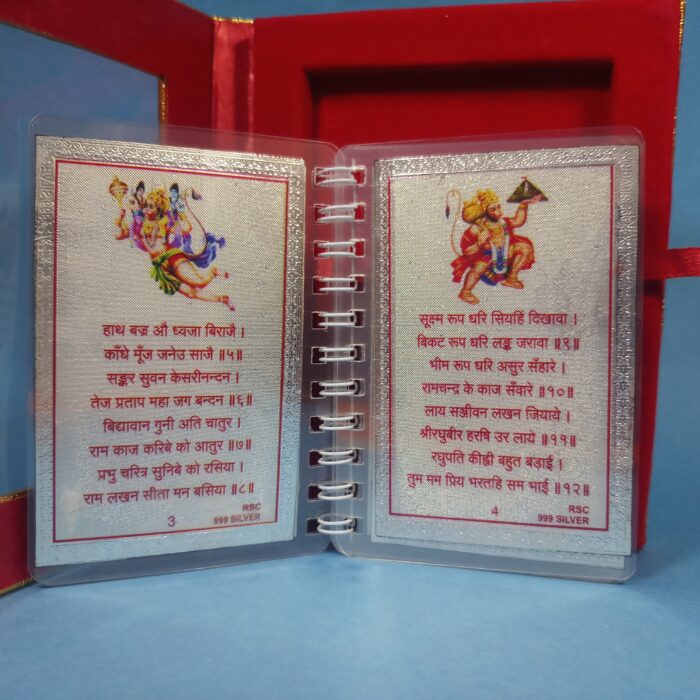 हाथ बज्र औ ध्वजा बिराजै ।
काँधे मूँज जनेउ साजै ॥५॥
सङ्कर सुवन केसरीनन्दन ।
तेज प्रताप महा जग बन्दन ॥६॥
बिद्यावान गुनी अति चातुर ।
राम काज करिबे को आतुर ॥७॥
प्रभु चरित्र सुनिबे को रसिया ।
राम लखन सीता मन बसिया ॥८॥
3
RSC
999 SILVER
सूक्ष्म रूप धरि सियहिं दिखावा ।
बिकट रूप धरि लङ्क जरावा ॥९॥
भीम रूप धरि असुर सँहारे ।
रामचन्द्र के काज सँवारे ॥१०॥
लाय सञ्जीवन लखन जियाये ।
श्रीरघुबीर हरषि उर लाये ॥११॥
रघुपति कीह्नी बहुत बड़ाई ।
तुम मम प्रिय भरतहि सम भाई ॥१२॥
4
RSC
999 SILVER